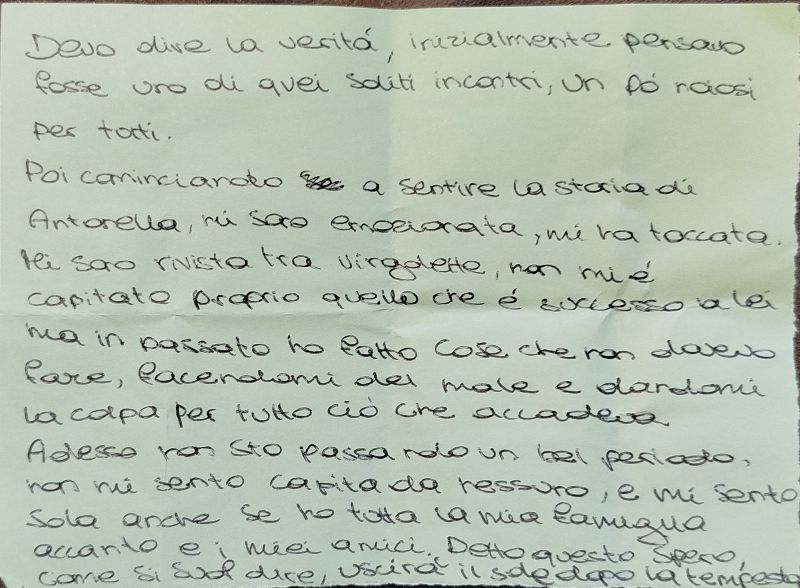 Devo dire la veritá, inizialmente pensavo
fosse uno di quei soliti incontri, un pó noiosi
per tutti.
Poi cominciando a sentire la storia di
Antonella, mi sono emozionata, mi ha toccata.
Mi sono rivista tra virgolette, non mi é
capitato proprio quello che é successo a lei
ma in passato ho fatto cose che non dovevo
fare, facendomi del male e dandomi
la colpa per tutto ció che accadeva.
Adesso non sto passando un bel periodo,
non mi sento capita da nessuno, e mi sento
sola anche se ho tutta la mia famiglia
accanto e i miei amici. Detto questo spero,
come si suol dire, uscirá il sole dopo la tempest